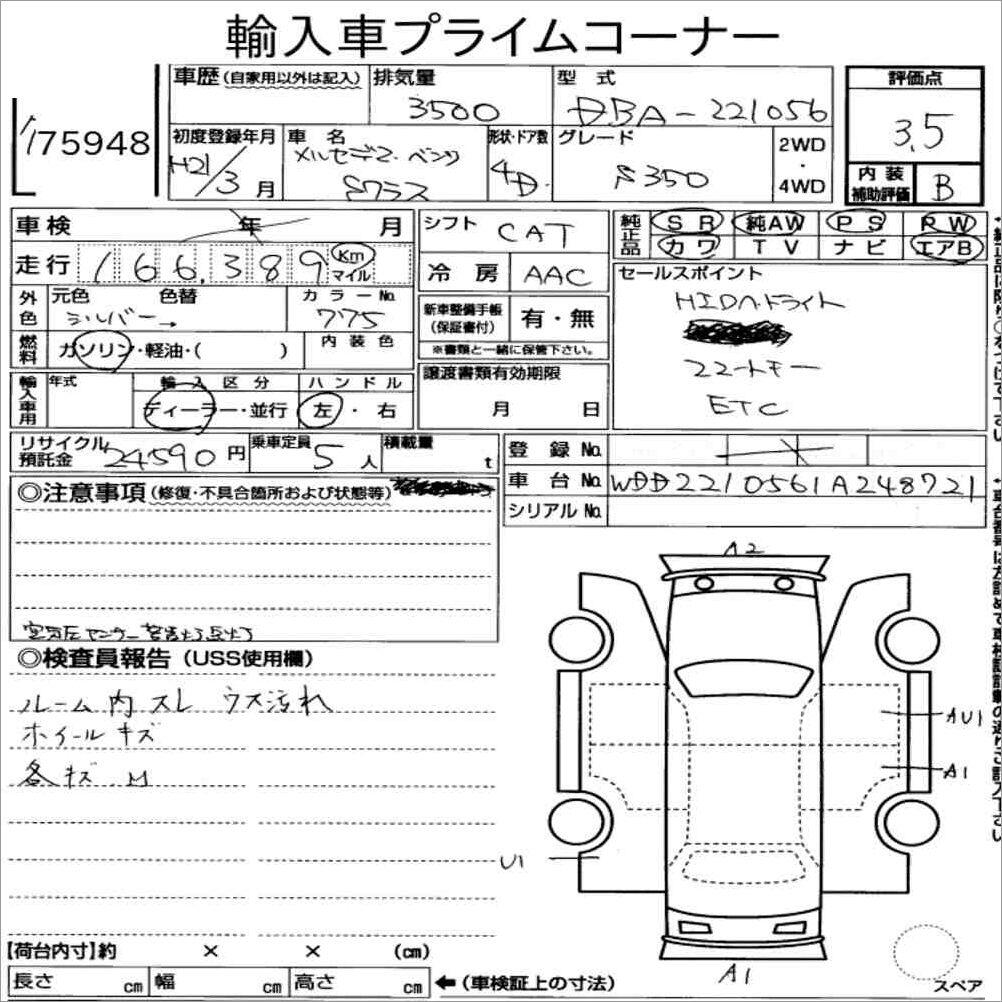 輸入車プライムコーナー
175948
車歴(自家用以外は記入)
排気量
3500
型 式
DBA-221056
評価点
3.5
初度登録年月
H21/3月
車 名
メルセデス・ベンツ
Sクラス
形状・ドア数
4D.
グレード
S350
2WD
・
4WD
内装
補助評価
B
車検 年 月
シフト CAT
純正品
SR 純AW PS RW
カワ TV ナビ エアB
走行 166,389 Km
マイル
冷房 AAC
セールスポイント
HIDヘッドライト
ETC
外色
元色 色替
シルバー→
カラーNo.
775
新車整備手帳
(保証書付)
有・無
※書類と一緒に保管下さい。
燃料
ガソリン・軽油・( )
内装色
譲渡書類有効期限
月 日
輸入車用
年式
輸入区分
ディーラー・並行
ハンドル
左・右
リサイクル
預託金
24590円
乗車定員
5人
積載量
t
登録No.
車台No. WDD2210561A248721
シリアルNo.
◎注意事項(修復・不具合箇所および状態等)
空気圧センサー警告灯点灯
◎検査員報告(USS使用欄)
ルーム内スレ ウス汚れ
ホイールキズ
各キズ
A2
AU1
A1
U1
A1
スペア
【荷台内寸】約 × × (cm)
長さ cm 幅 cm 高さ cm ←(車検証上の寸法)